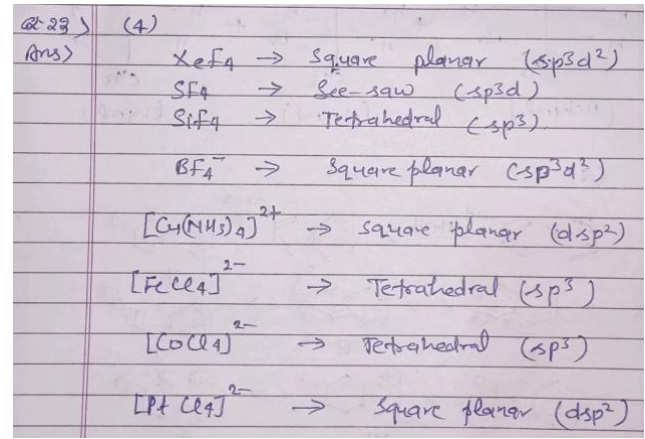 Q-29) (4)
Ans) XeF4 → Square planar (sp3d²)
SF4 → See-saw (sp3d)
SiF4 → Tetrahedral (sp3)
BF4⁻ → Square planar (sp3d²)
[Cu(NH3)4]²⁺ → square planar (dsp²)
[FeCl4]²⁻ → Tetrahedral (sp3)
[CoCl4]²⁻ → Tetrahedral (sp3)
[PtCl4]²⁻ → Square planar (dsp²)